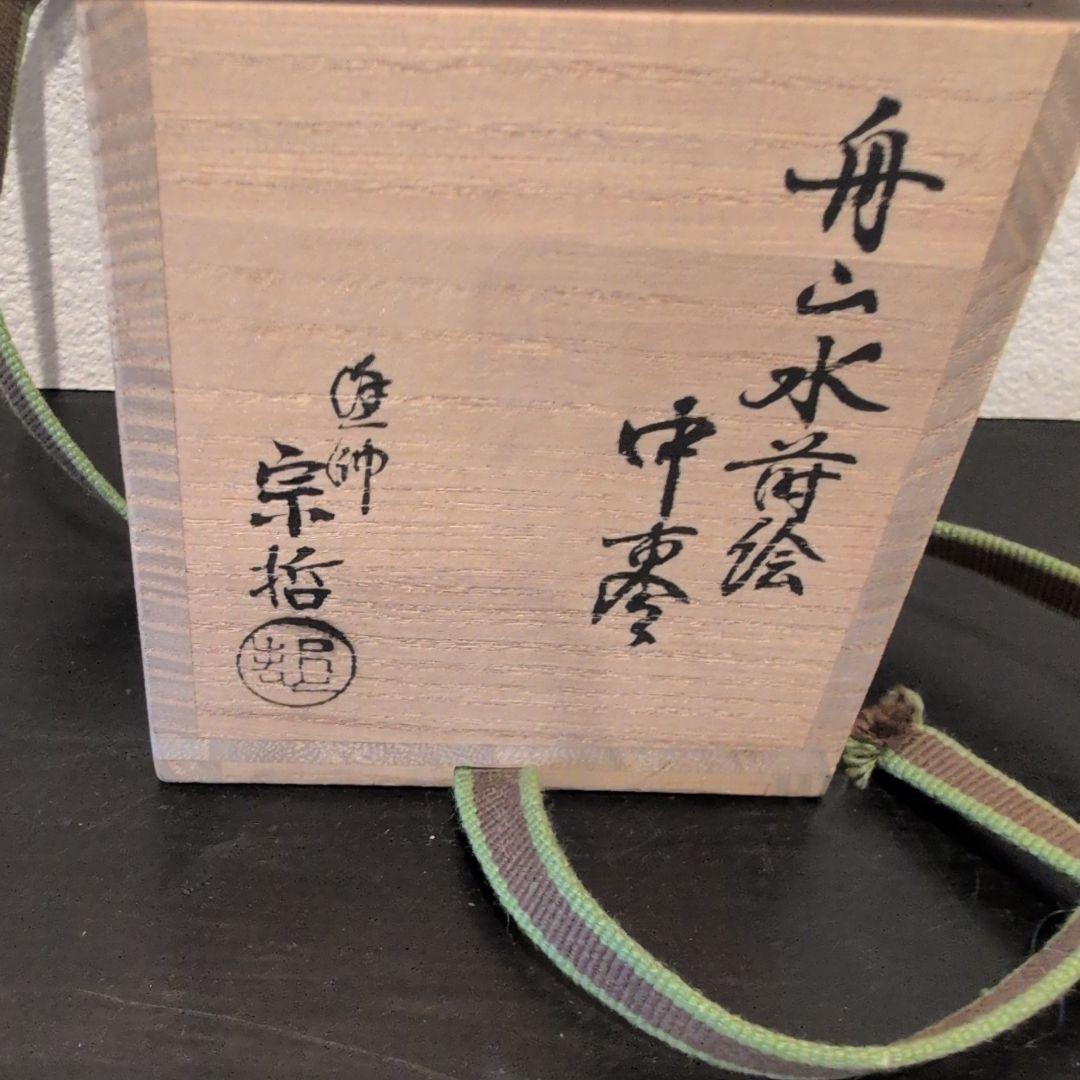 舟山水蒔絵
中棗
塗師
宗哲